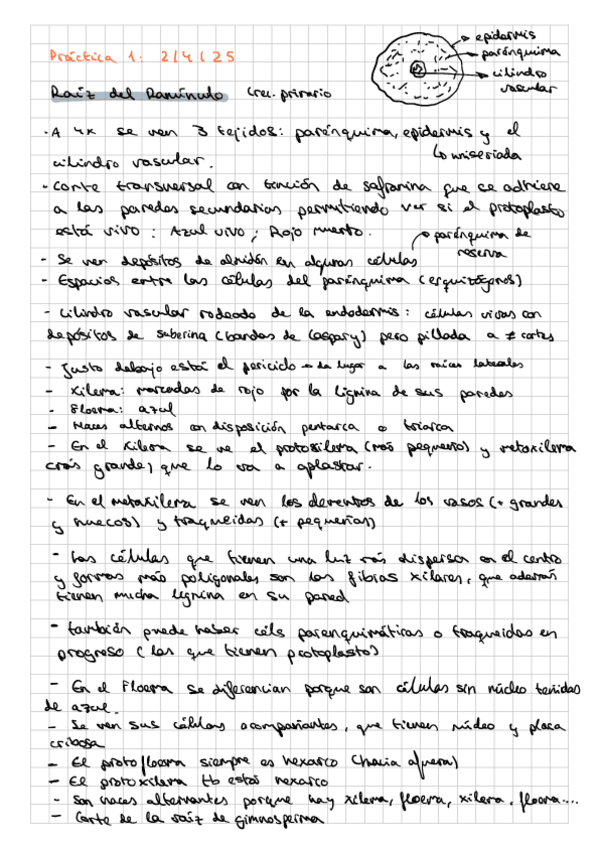 Práctica 1: 2/4/25
epidermis
parénquima
cilindro
vascular
Raíz del Ranúnculo Crec. primario
· A 4x se ven 3 tejidos: parénquima, epidermis y el
uniseriada
cilindro vascular.
· Corte transversal con tinción de safranina que se adhiere
a las paredes secundarias permitiendo ver si el protoplasto
está vivo: Azul vivo; Rojo muerto.
parénquima de
reserva
- Se ven depósitos de almidón en algunas células
- Espacios entre las células del parénquima (esquizógenos)
- Cilindro vascular rodeado de la endodermis: células vivas con
depósitos de suberina (bandas de Caspary) pero pillada a ≠ cortes
- Justo debajo está el periciclo → da lugar a las raíces laterales
- Xilema: marcadas de rojo por la lignina de sus paredes
- Floema: azul
- Haces alternos con disposición pentarca o triarca
- En el Xilema se ve el protoxilema (más pequeño) y metaxilema
(más grande) que lo va a aplastar.
- En el metaxilema se ven los elementos de los vasos (+ grandes
y huecos) y traqueidas (+ pequeñas)
- Las células que tienen una luz más dispersa en el centro
y formas más poligonales son las fibras xilares, que además
tienen mucha lignina en su pared
- También puede haber céls parenquimáticas o traqueidas en
progreso (las que tienen protoplasto)
- En el Floema se diferencian porque son células sin núcleo teñidas
de azul.
- Se ven sus células acompañantes, que tienen núcleo y placa
cribosa
- El protofloema siempre es hexarco (hacia afuera)
- El protoxilema tb está hexarco
- Son haces alternantes porque hay xilema, floema, xilema, floema....
- Corte de la raíz de gimnosperma